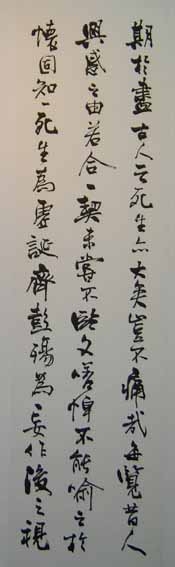 期於盡古人云死生亦大矣豈不痛哉每覽昔人
興感之由若合一契未嘗不臨文嗟悼不能喻之於
懷固知一死生為虛誕齊彭殤為妄作後之視